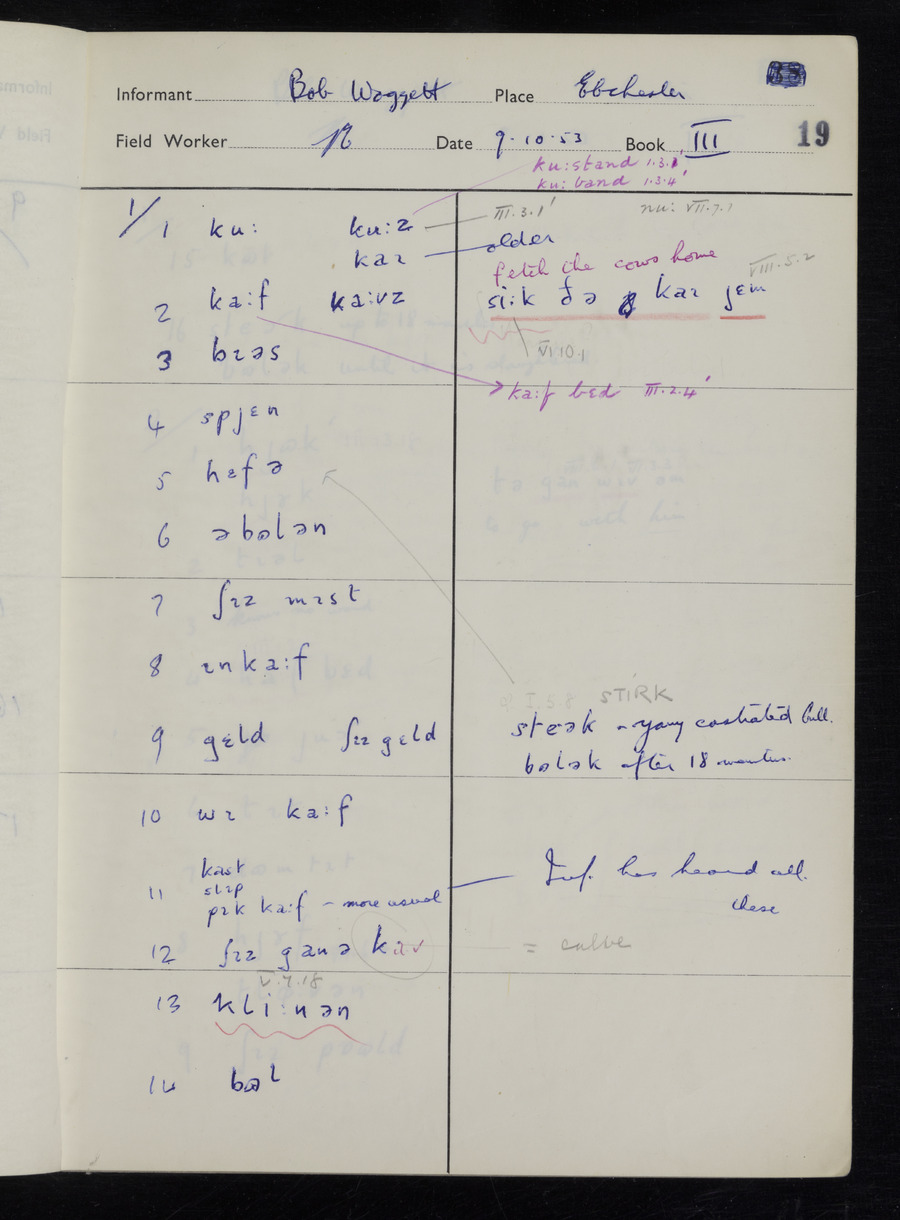 Informant Bob Waggett Place Ebchester
19
Field Worker Date 9.10.53 Book III
ku:stand I.3.1'
ku:band I.3.4'
1/
1 ku: ku:z III.3.1' nu: VII.7.1
kaɪ older
fetch the cows home VIII.5.2
2 ka:f ka:vz si:k ðə kaɪ jɛm
VI 10.1
3 bɪəs
ka:f bɛd III.2.4'
4 spjɛn
5 hɛfə
6 əbələn
7 ʃɪz mɪst
8 ɪnka:f
I.5.8 STIRK
9 gɛld ʃɪz gɛld steək - young castrated bull.
bələk after 18 months.
10 wɪ ka:f
kast
11 slɪp Inf. has heard all
pɪk ka:f - more usual these
12 ʃɪz ganə kav = calve
V.7.18
13 kli:nən
14 bəl